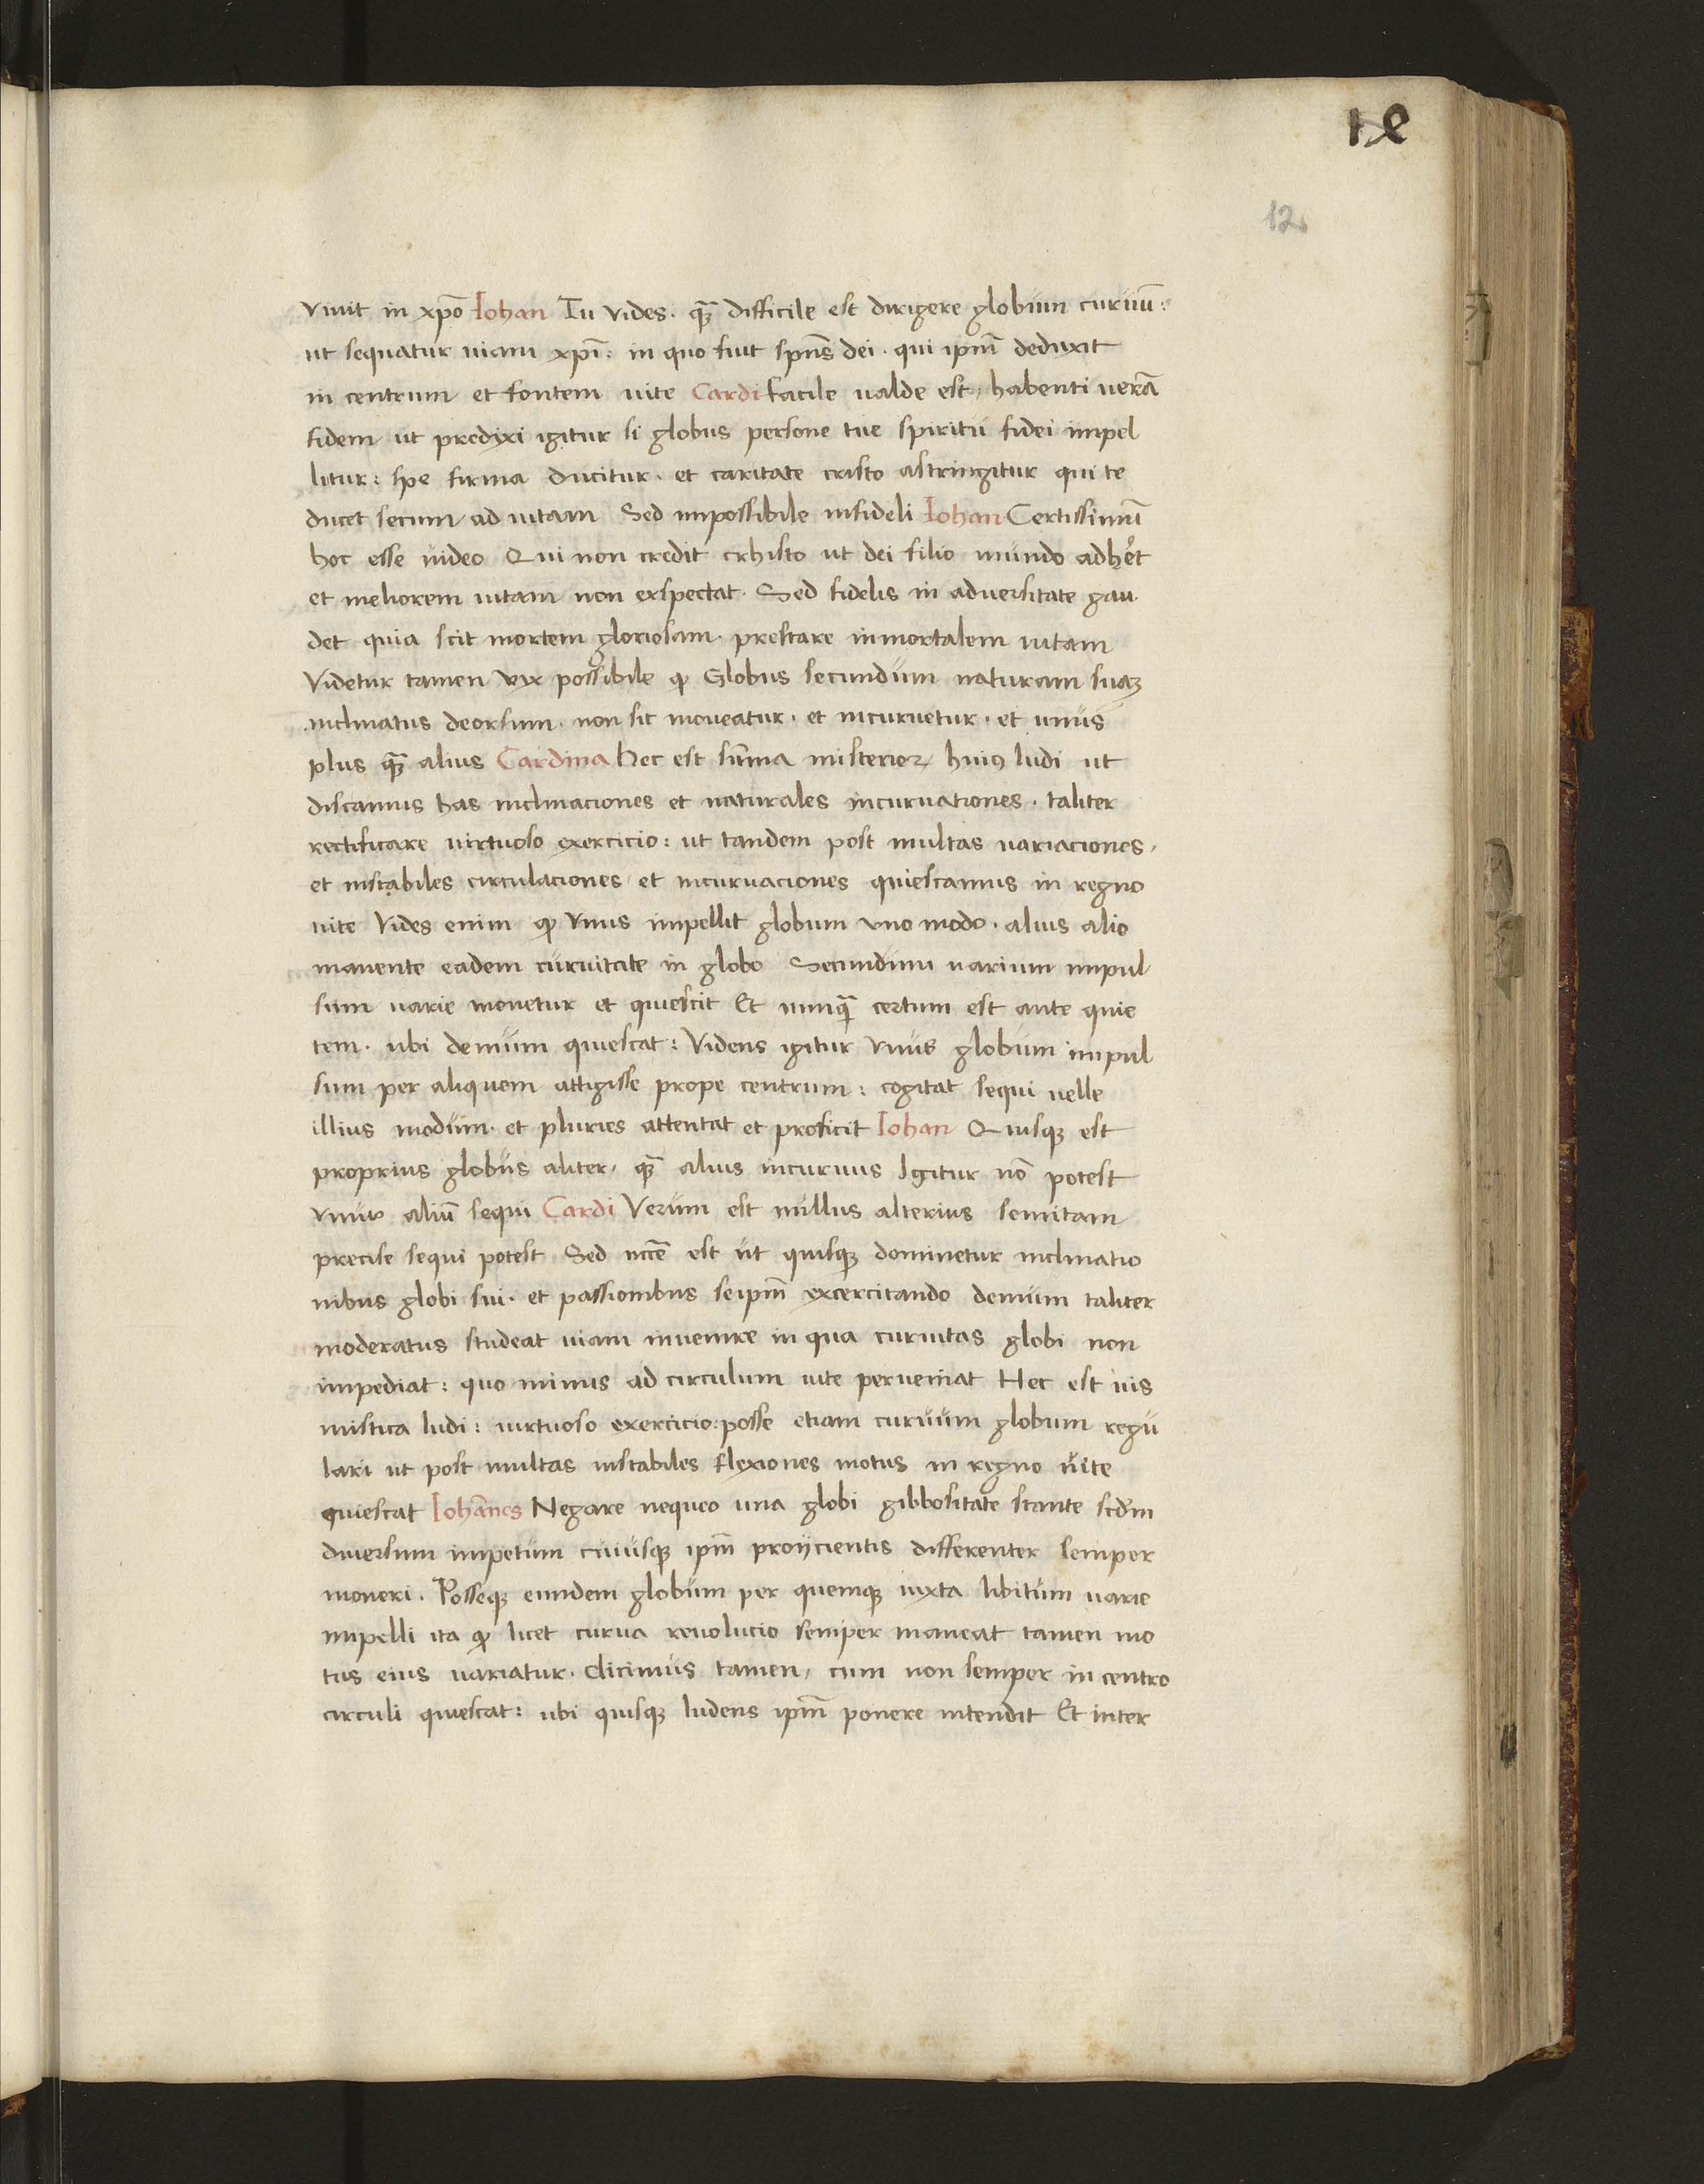 12
12
viuit in xp̄o Iohan Tu vides. qȝ̄ difficile est dirigere globum curuū:
ut sequatur uiam xp̄i: in quo fuit spn̄s dei. qui ipm̄ deduxit
in centrum et fontem uite Cardi facile ualde est, habenti uerā
fidem ut predixi igitur si globus persone tue spiritu fidei impel
litur: spe firma ducitur. et caritate cristo astringitur qui te
ducet secum ad uitam Sed impossibile infideli Iohan Certissimū
hoc esse uideo Qui non credit crhisto ut dei filio mundo adhꝰet
et meliorem uitam non exspectat. Sed fidelis in aduersitate gau
det quia scit mortem gloriosam. prestare inmortalem uitam
Videtur tamen vix possibile ꝙ Globus secundum naturam suaȝ
inclinatus deorsum. non sic moueatur. et incuruetur. et unus
plus qȝ̄ alius Cardina hec est sūma misterioꝝ huiꝰ ludi ut
discamus has inclinaciones et naturales incuruationes. taliter
rectificare uirtuoso exercicio: ut tandem post multas uariaciones,
et instabiles circulaciones et incuruaciones quiescamus in regno
uite Vides enim ꝙ Vnus impellit globum vno modo. alius alio
manente eadem curuitate in globo Secundum uarium impul
sum uarie mouetur et quiescit Et nunqȝ̄ certum est ante quie
tem. ubi demum quiescat: Videns igitur vnus globum impul
sum per aliquem attigisse prope centrum: cogitat sequi uelle
illius modum. et pluries attentat et proficit Iohan Quisqȝ est
proprius globus aliter, qȝ̄ alius incuruus Igitur nō potest
vnus aliū sequi Cardi Verum est nullus alterius semitam
precise sequi potest Sed nccē est ut quisqȝ dominetur inclinatio
nibus globi sui. et passionibus seipm̄ excercitando demum taliter
moderatus studeat uiam inuenire in qua curuitas globi non
impediat: quo minus ad circulum uite perueniat Hec est uis
mistica ludi: uirtuoso exercicio: posse etiam curuum globum regu
lari ut post multas instabiles flexiones motus in regno uite
quiescat Iohānes Negare nequeo una globi gibbositate stante scd̄m
diuersum impetum cuiusqȝ ipm̄ proijcientis differenter semper
moueri. Posseqȝ eundem globum per quemqȝ iuxta libitum uarie
impelli ita ꝙ licet curua reuolucio semper maneat tamen mo
tus eius uariatur. dicimus tamen, cum non semper in centro
circuli quiescat: ubi quisqȝ ludens ipm̄ ponere intendit Et inter